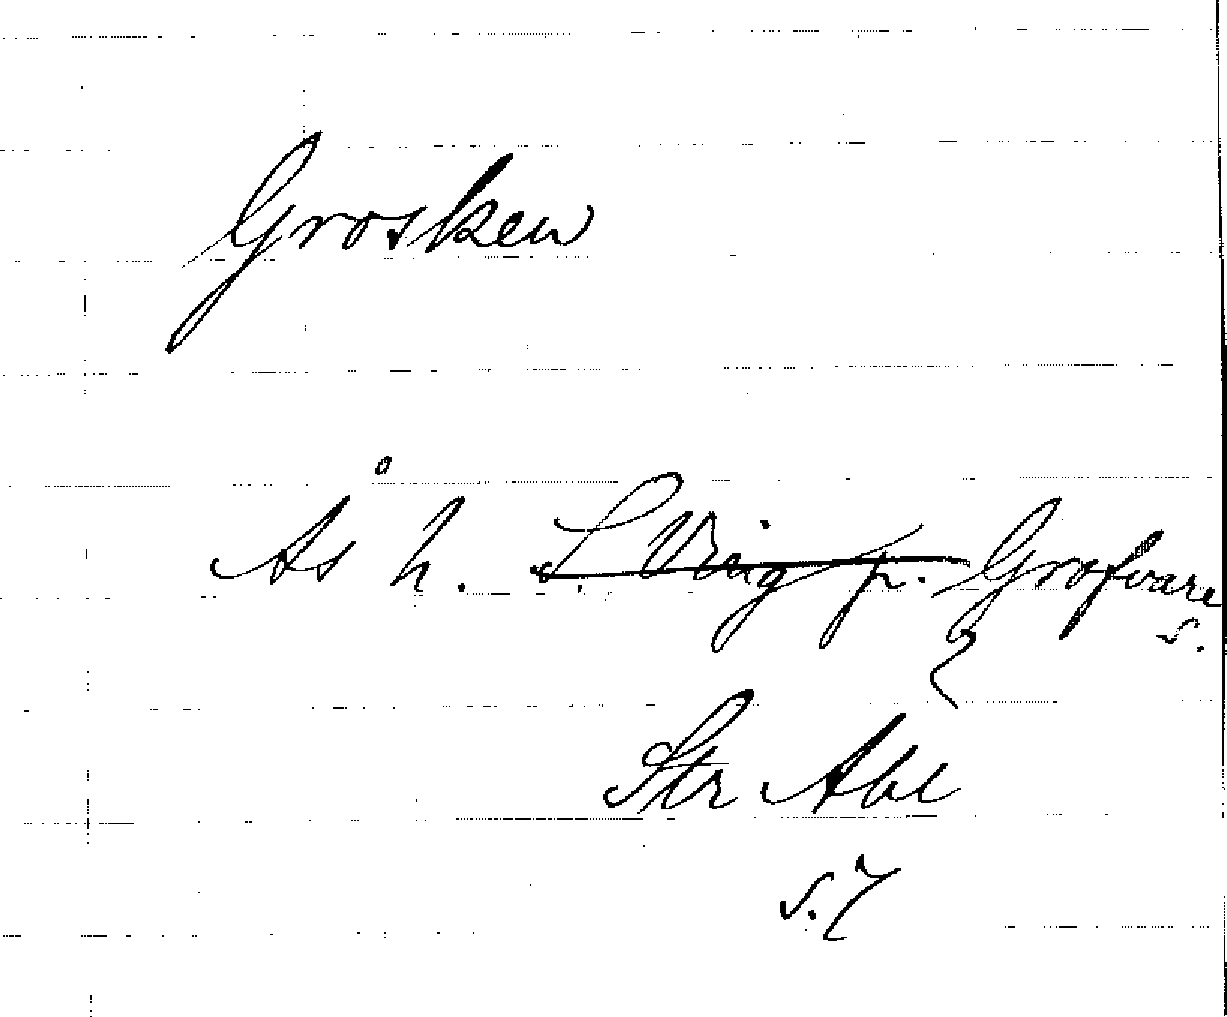 Grosken
Ås h. L. Ving p. Grofvare
s.
Str Abl
s. 7